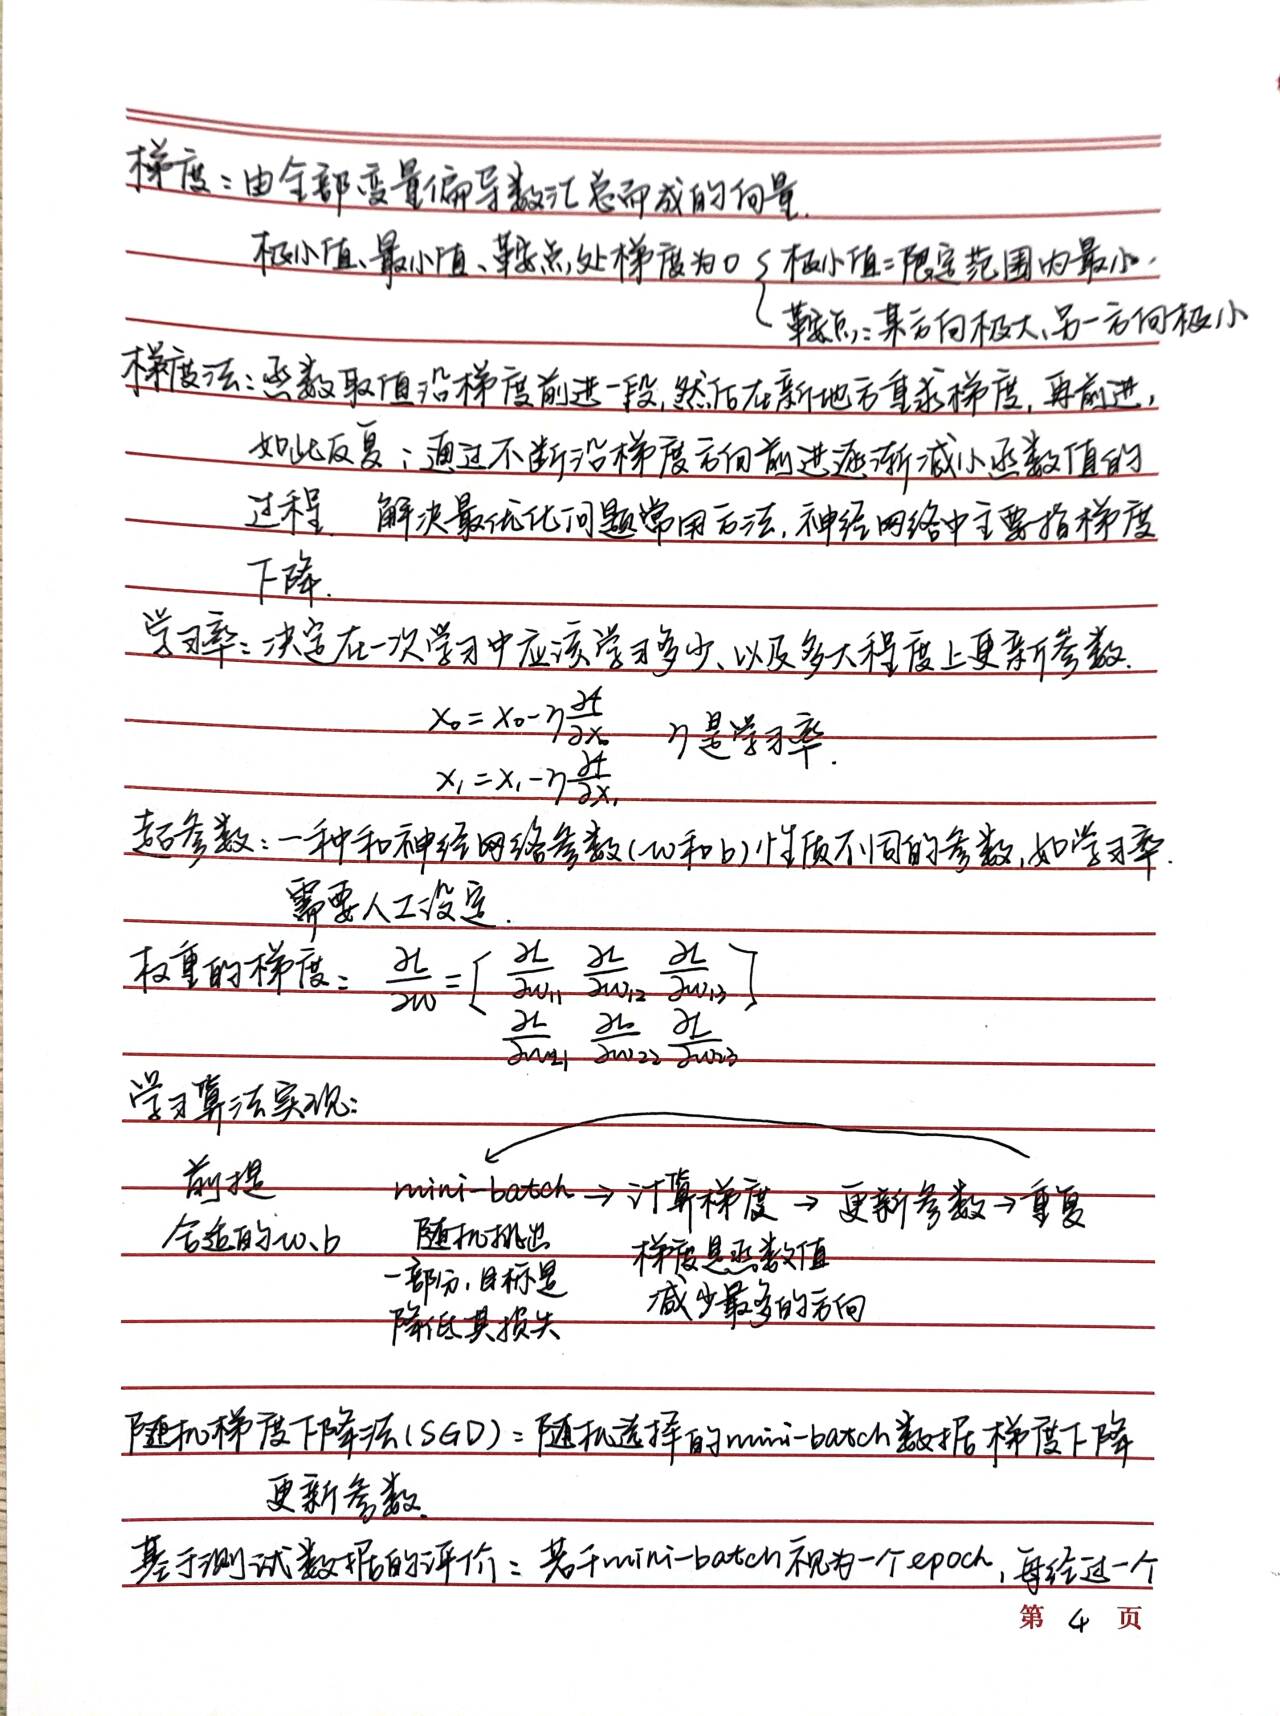 梯度：由全部变量偏导数汇总而成的向量.
极小值、最小值、鞍点处梯度为0 { 极小值：限定范围内最小.
鞍点：某方向极大、另一方向极小
梯度法：函数取值沿梯度前进一段,然后在新地方重求梯度,再前进,
如此反复；通过不断沿梯度方向前进逐渐减小函数值的
过程. 解决最优化问题常用方法,神经网络中主要指梯度
下降.
学习率：决定在一次学习中应该学习多少、以及多大程度上更新参数.
x₀ = x₀ - η ∂f/∂x₀ η是学习率.
x₁ = x₁ - η ∂f/∂x₁
超参数：一种和神经网络参数(w和b)性质不同的参数,如学习率.
需要人工设定.
权重的梯度： ∂L/∂w = [ ∂L/∂w₁₁ ∂L/∂w₁₂ ∂L/∂w₁₃ ]
∂L/∂w₂₁ ∂L/∂w₂₂ ∂L/∂w₂₃
学习算法实现：
前提 mini-batch → 计算梯度 → 更新参数 → 重复
合适的w、b 随机挑出 梯度是函数值
一部分,目标是 减少最多的方向
降低其损失
随机梯度下降法(SGD)：随机选择的mini-batch数据梯度下降
更新参数.
基于测试数据的评价：若干mini-batch视为一个epoch,每经过一个
第 4 页